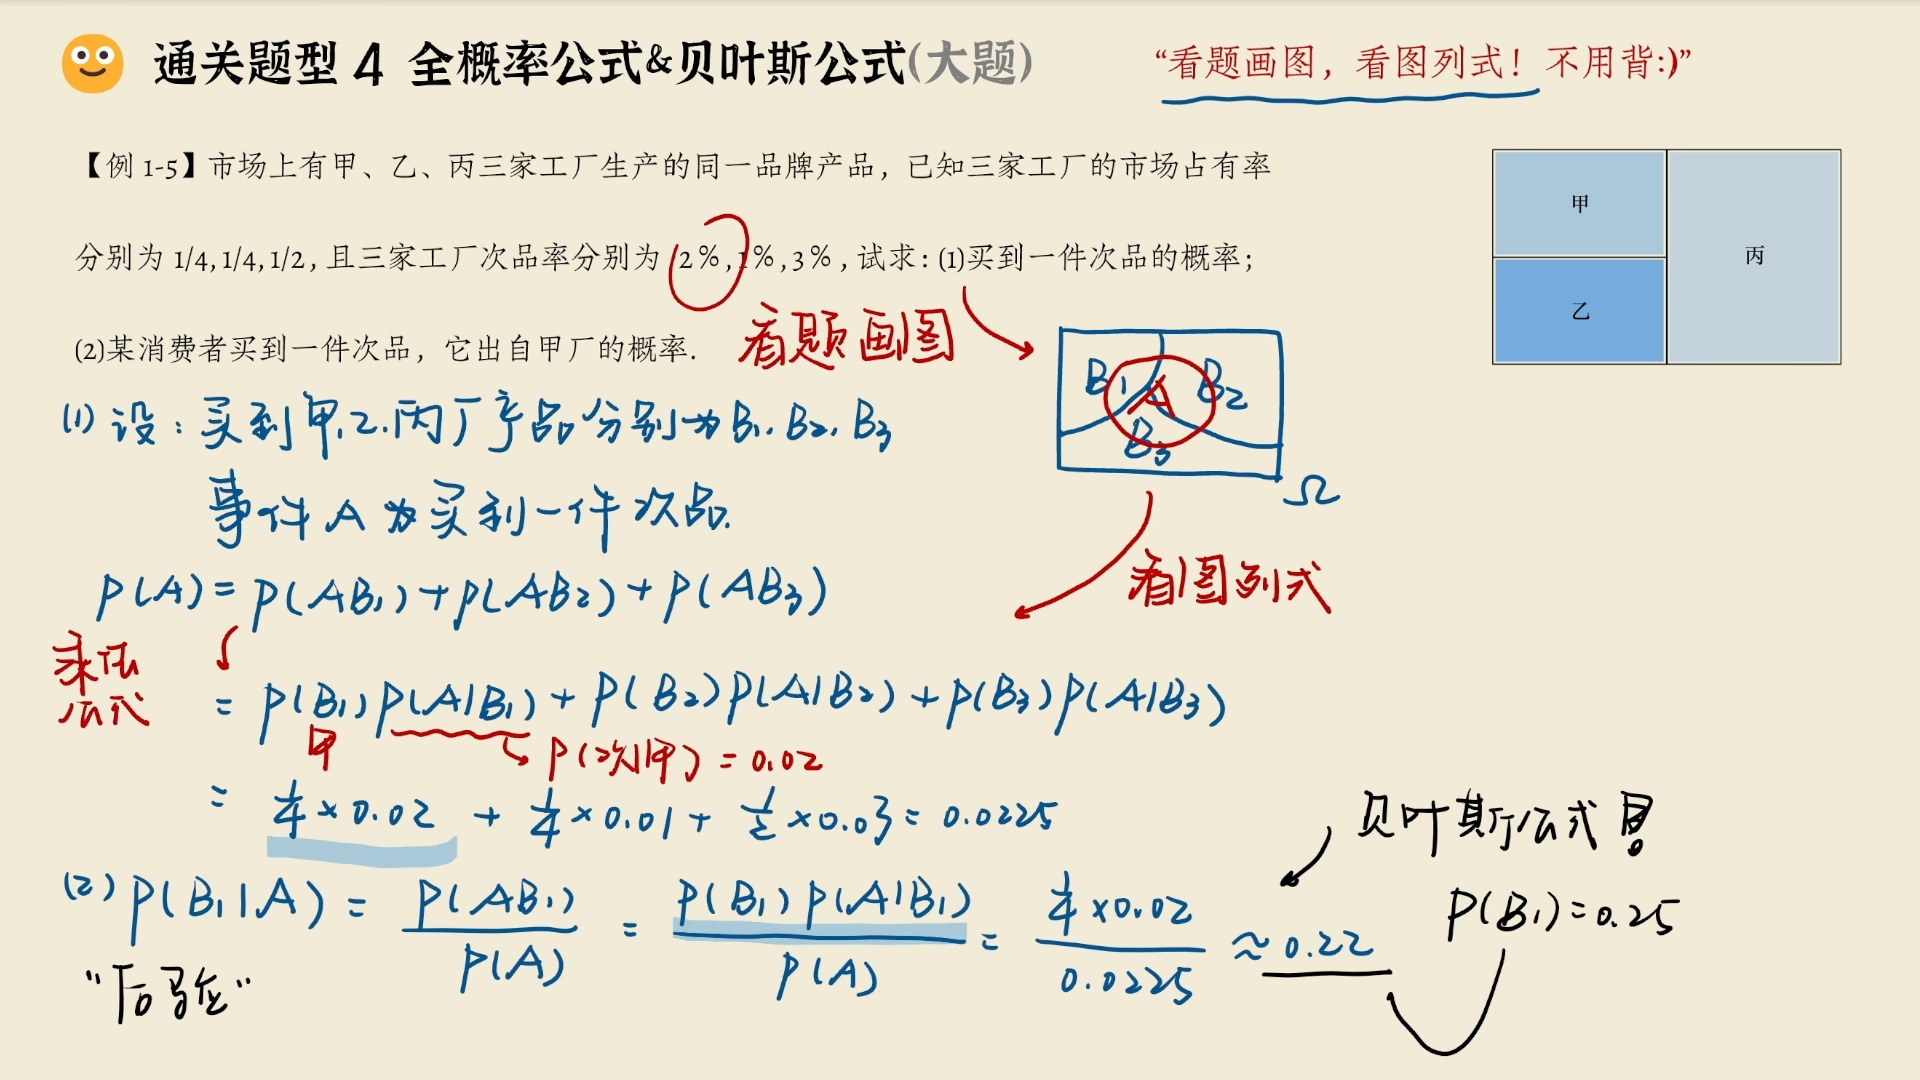 通关题型 4 全概率公式&贝叶斯公式(大题)
“看题画图，看图列式！不用背:)”
【例 1-5】市场上有甲、乙、丙三家工厂生产的同一品牌产品，已知三家工厂的市场占有率
分别为 1/4,1/4,1/2，且三家工厂次品率分别为 2％,1％,3％，试求：(1)买到一件次品的概率；
(2)某消费者买到一件次品，它出自甲厂的概率.
甲
乙
丙
看题画图
B₁ A B₂
B₃
Ω
(1) 设：买到甲.乙.丙厂产品分别为B₁. B₂. B₃
事件A为买到一件次品.
看图列式
P(A) = P(AB₁) + P(AB₂) + P(AB₃)
乘法公式
= P(B₁)P(A|B₁) + P(B₂)P(A|B₂) + P(B₃)P(A|B₃)
甲
P(次|甲) = 0.02
= 1/4 × 0.02 + 1/4 × 0.01 + 1/2 × 0.03 = 0.0225
贝叶斯公式！
(2) P(B₁|A) = P(AB₁)/P(A) = P(B₁)P(A|B₁)/P(A) = 1/4 × 0.02/0.0225 ≈ 0.22
P(B₁) = 0.25
“后验”